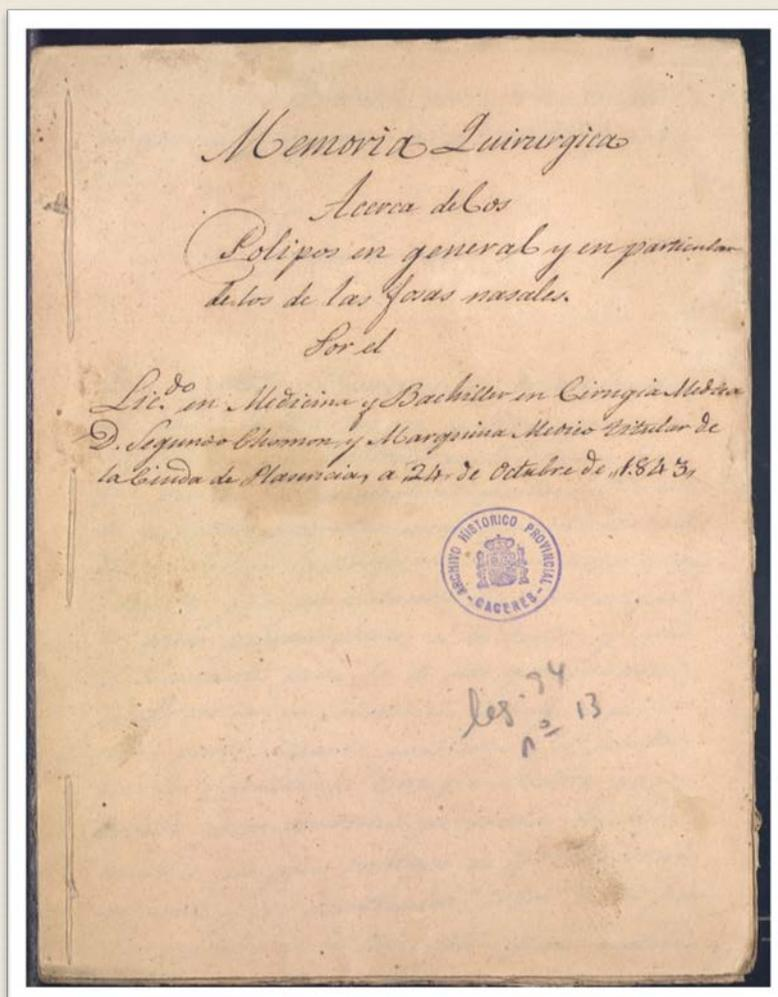 Memoria Quirurgica
Acerca de los
Polipos en general y en particular
de los de las fosas nasales.
Por el
Lic.do en Medicina y Bachiller en Cirugia Medica
D. Segundo Chomon, y Marquina Medico titular de
la Ciuda de Plasencia, a 24, de Octubre de "1.843,
ARCHIVO HISTORICO PROVINCIAL
- CACERES -
leg - 94
nº 13